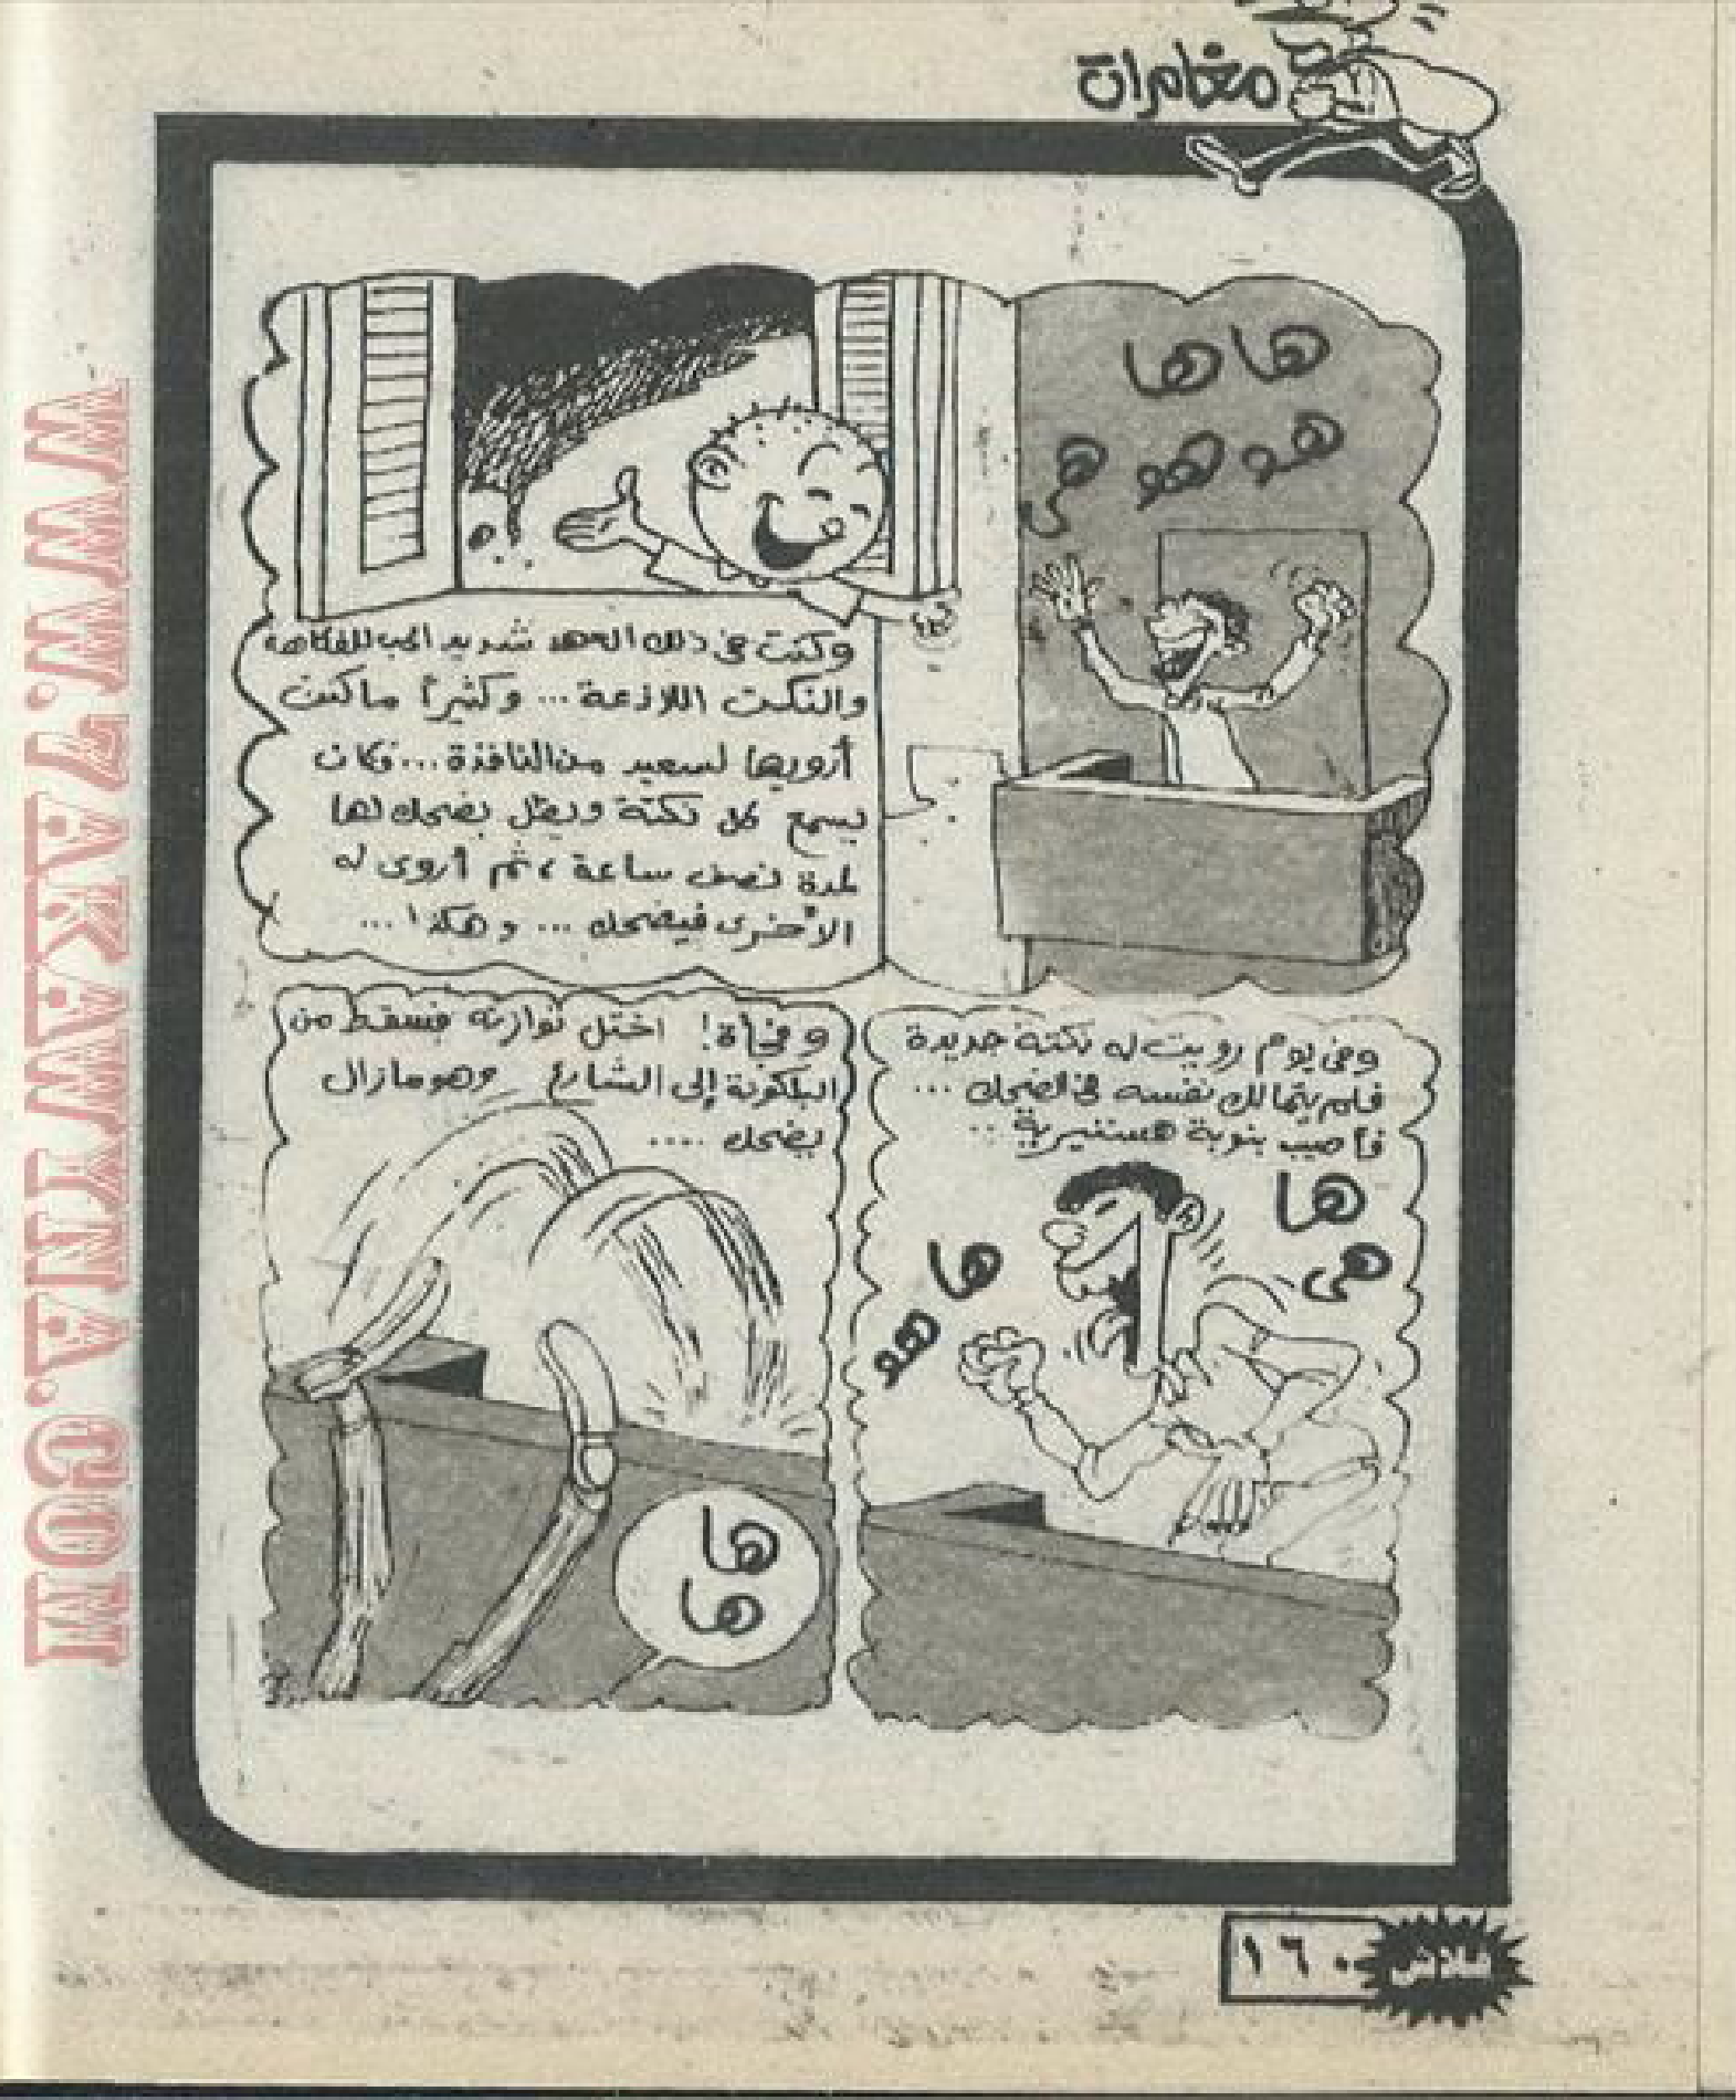 مغامرات
ها ها
هو هو هى
وكنت فى ذلك العهد شديد الحب للفكاهة
والنكت اللاذعة ... وكثيراً ما كنت
أرويها لسعيد من النافذة ... فكان
يسمع كل نكتة ويظل يضحك لها
لمدة نصف ساعة ، ثم أروى له
الأخرى فيضحك ... وهكذا ...
وفى يوم رويت له نكتة جديدة
فلم يتمالك نفسه فى الضحك ...
فأصيب بنوبة هستيرية ..
ها
هى
ها
هو
وفجأة! اختل توازنه فسقط من
البلكونة إلى الشارع وهو مازال
يضحك ....
ها
ها
فلاش ١٦٠
WWW.7AKAWITNA.COM